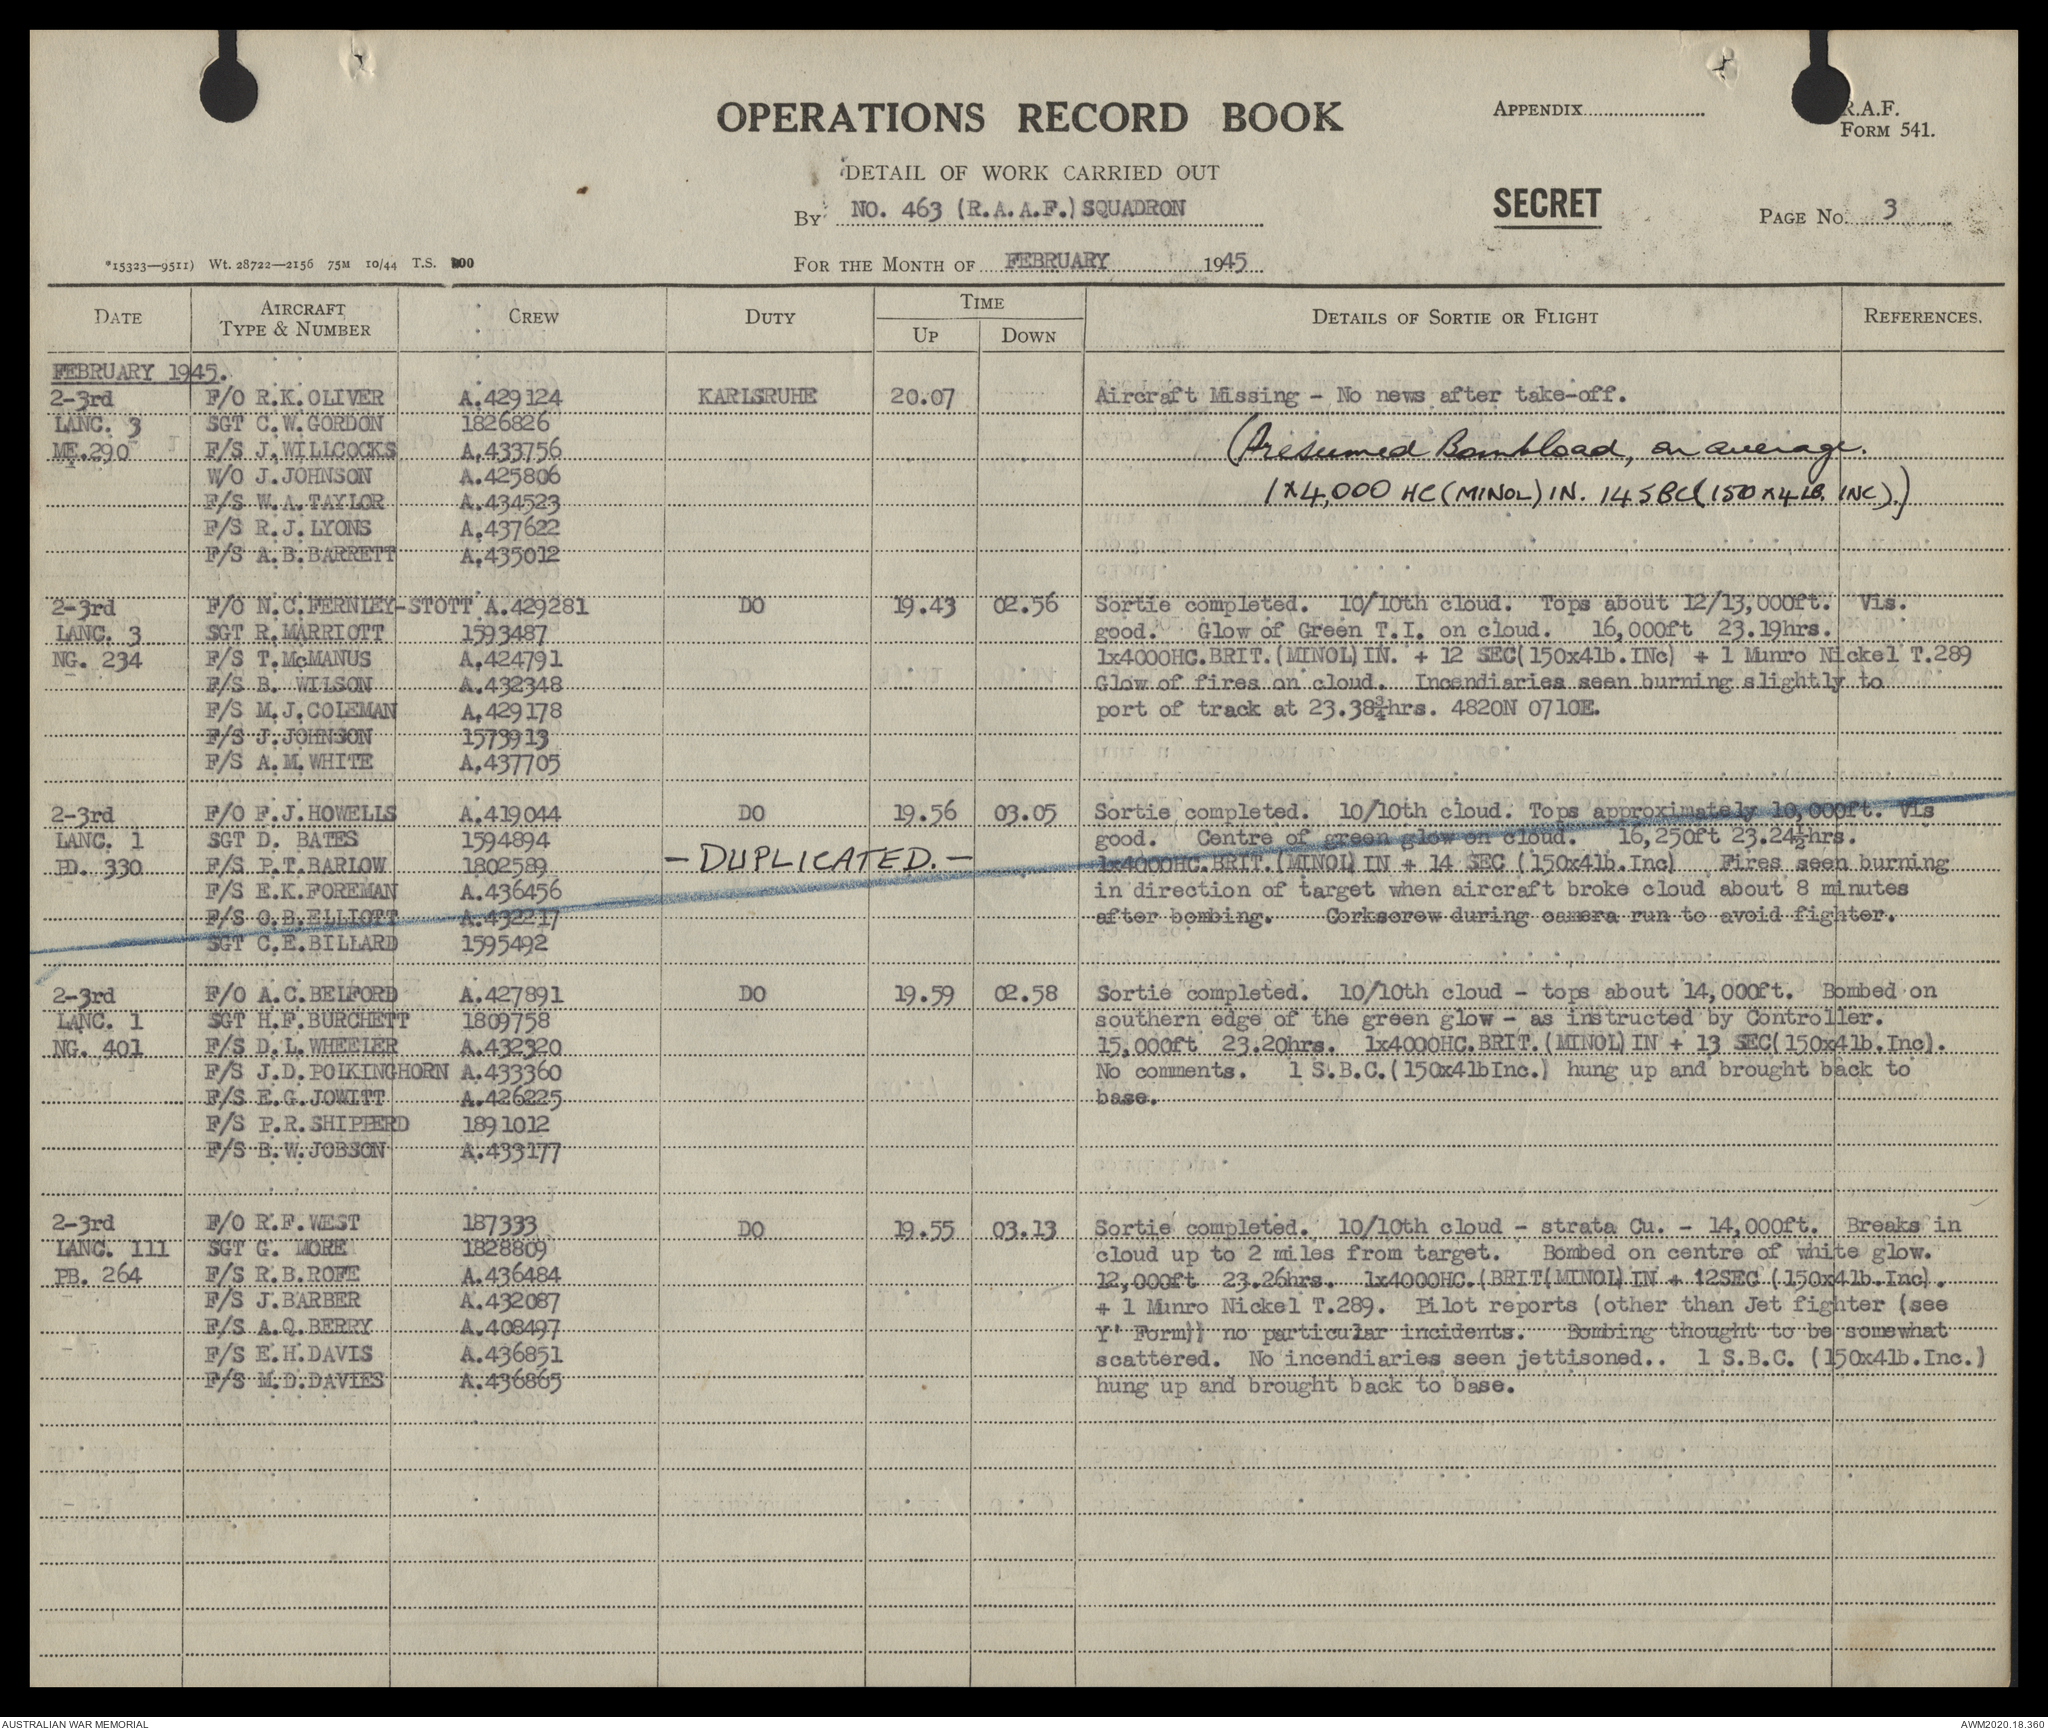 OPERATIONS RECORD BOOK
APPENDIX
R.A.F.
FORM 541.
DETAIL OF WORK CARRIED OUT
BY NO. 463 (R.A.A.F.) SQUADRON
SECRET
PAGE No. 3
*15323—9511) Wt. 28722—2156 75M 10/44 T.S.
FOR THE MONTH OF FEBRUARY 1945
DATE AIRCRAFT TYPE & NUMBER CREW DUTY TIME UP DOWN DETAILS OF SORTIE OR FLIGHT REFERENCES.
FEBRUARY 1945.
2-3rd F/O R.K.OLIVER A.429124 KARLSRUHE 20.07 Aircraft Missing - No news after take-off.
LANC. 3 SGT C.W.GORDON 1826826
ME.290 F/S J.WILLCOCKS A.433756 (Presumed Bombload, on average.
W/O J.JOHNSON A.425806
F/S W.A.TAYLOR A.434523 1x4,000 HC (MINOL) IN. 14 SBC (150 x 4 LB. INC).)
F/S R.J.LYONS A.437622
F/S A.B.BARRETT A.435012
2-3rd F/O N.C.FERNLEY-STOTT A.429281 DO 19.43 02.56 Sortie completed. 10/10th cloud. Tops about 12/13,000ft. Vis.
LANC. 3 SGT R.MARRIOTT 1593487 good. Glow of Green T.I. on cloud. 16,000ft 23.19hrs.
NG. 234 F/S T.McMANUS A.424791 1x4000HC.BRIT.(MINOL)IN. + 12 SEC(150x4lb.INc) + 1 Munro Nickel T.289
F/S B. WILSON A.432348 Glow of fires on cloud. Incendiaries seen burning slightly to
F/S M.J.COLEMAN A.429178 port of track at 23.38¾hrs. 4820N 0710E.
F/S J.JOHNSON 1573913
F/S A.M.WHITE A.437705
2-3rd F/O F.J.HOWELLS A.419044 DO 19.56 03.05 Sortie completed. 10/10th cloud. Tops approximately 10,000ft. Vis
LANC. 1 SGT D. BATES 1594894 good. Centre of green glow on cloud. 16,250ft 23.24½hrs.
PD. 330 F/S P.T.BARLOW 1802589 - DUPLICATED. - 1x4000HC.BRIT.(MINOL)IN + 14 SEC (150x4lb.Inc) Fires seen burning
F/S E.K.FOREMAN A.436456 in direction of target when aircraft broke cloud about 8 minutes
F/S O.B.ELLIOTT A.432217 after bombing. Corkscrew during camera run to avoid fighter.
SGT C.E.BILLARD 1595492
2-3rd F/O A.C.BELFORD A.427891 DO 19.59 02.58 Sortie completed. 10/10th cloud - tops about 14,000ft. Bombed on
LANC. 1 SGT H.F.BURCHETT 1809758 southern edge of the green glow - as instructed by Controller.
NG. 401 F/S D.L.WHEELER A.432320 15,000ft 23.20hrs. 1x4000HC.BRIT.(MINOL)IN + 13 SEC(150x4lb.Inc).
F/S J.D.POLKINGHORN A.433360 No comments. 1 S.B.C.(150x4lbInc.) hung up and brought back to
F/S E.G.JOWITT A.426225 base.
F/S P.R.SHIPPERD 1891012
F/S B.W.JOBSON A.433177
2-3rd F/O R.F.WEST 187333 DO 19.55 03.13 Sortie completed. 10/10th cloud - strata Cu. - 14,000ft. Breaks in
LANC. 111 SGT G. MORE 1828809 cloud up to 2 miles from target. Bombed on centre of white glow.
PB. 264 F/S R.B.ROFE A.436484 12,000ft 23.26hrs. 1x4000HC.(BRIT(MINOL)IN + 12SEC (150x4lb.Inc).
F/S J.BARBER A.432087 + 1 Munro Nickel T.289. Pilot reports (other than Jet fighter (see
F/S A.Q.BERRY A.408497 Y' Form)) no particular incidents. Bombing thought to be somewhat
F/S E.H.DAVIS A.436851 scattered. No incendiaries seen jettisoned.. 1 S.B.C. (150x4lb.Inc.)
F/S M.D.DAVIES A.436865 hung up and brought back to base.
AUSTRALIAN WAR MEMORIAL
AWM2020.18.360